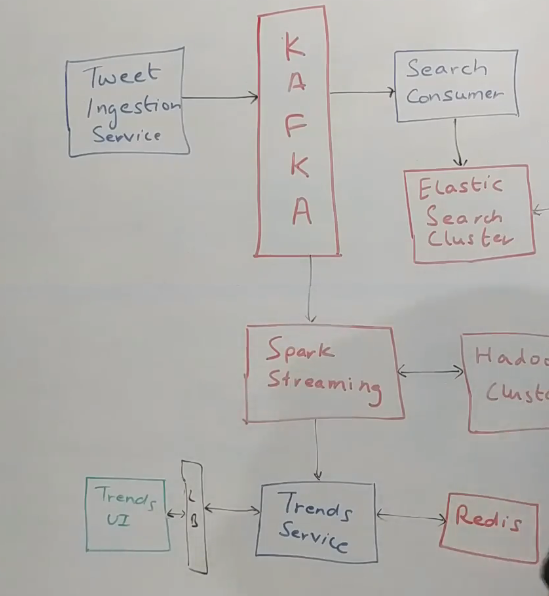 Tweet
Ingestion
Service
K
A
F
K
A
Search
Consumer
Elastic
Search
Cluster
Spark
Streaming
Hadoo
Cluste
Trends
UI
L
B
Trends
Service
Redis